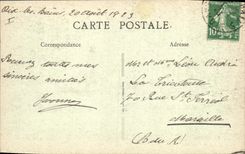 Aix les Bains, 20 août 1923
CARTE POSTALE
Correspondance
Adresse
Recevez toutes mes
sincères amitiés
Yvonne
Mr et Mme Léon André
La
70 Rue St Ferréol
Marseille
B. du R.
10